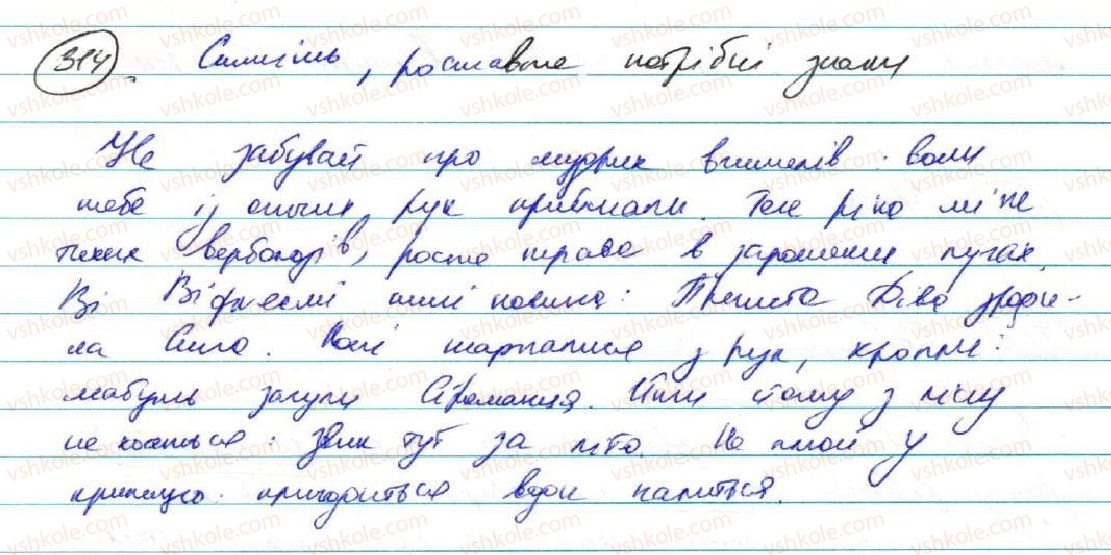 314. Спишіть, розставте потрібні знаки
Не забувай про мудрих вчителів: вони
тебе із отчих рук приймали. Тече ріка між
тихих верболозів, росте трава в зарошених лугах.
Ві Віфлеємі нині новина: Пречиста Діва зроди-
ла Сина. Коні шарпалися з рук, хропли:
мабуть зачули Сіроманця. Йти йому з лісу
не хочеться: звик тут за літо. Не плюй у
криницю: пригодиться води напиться.
vshkole.com